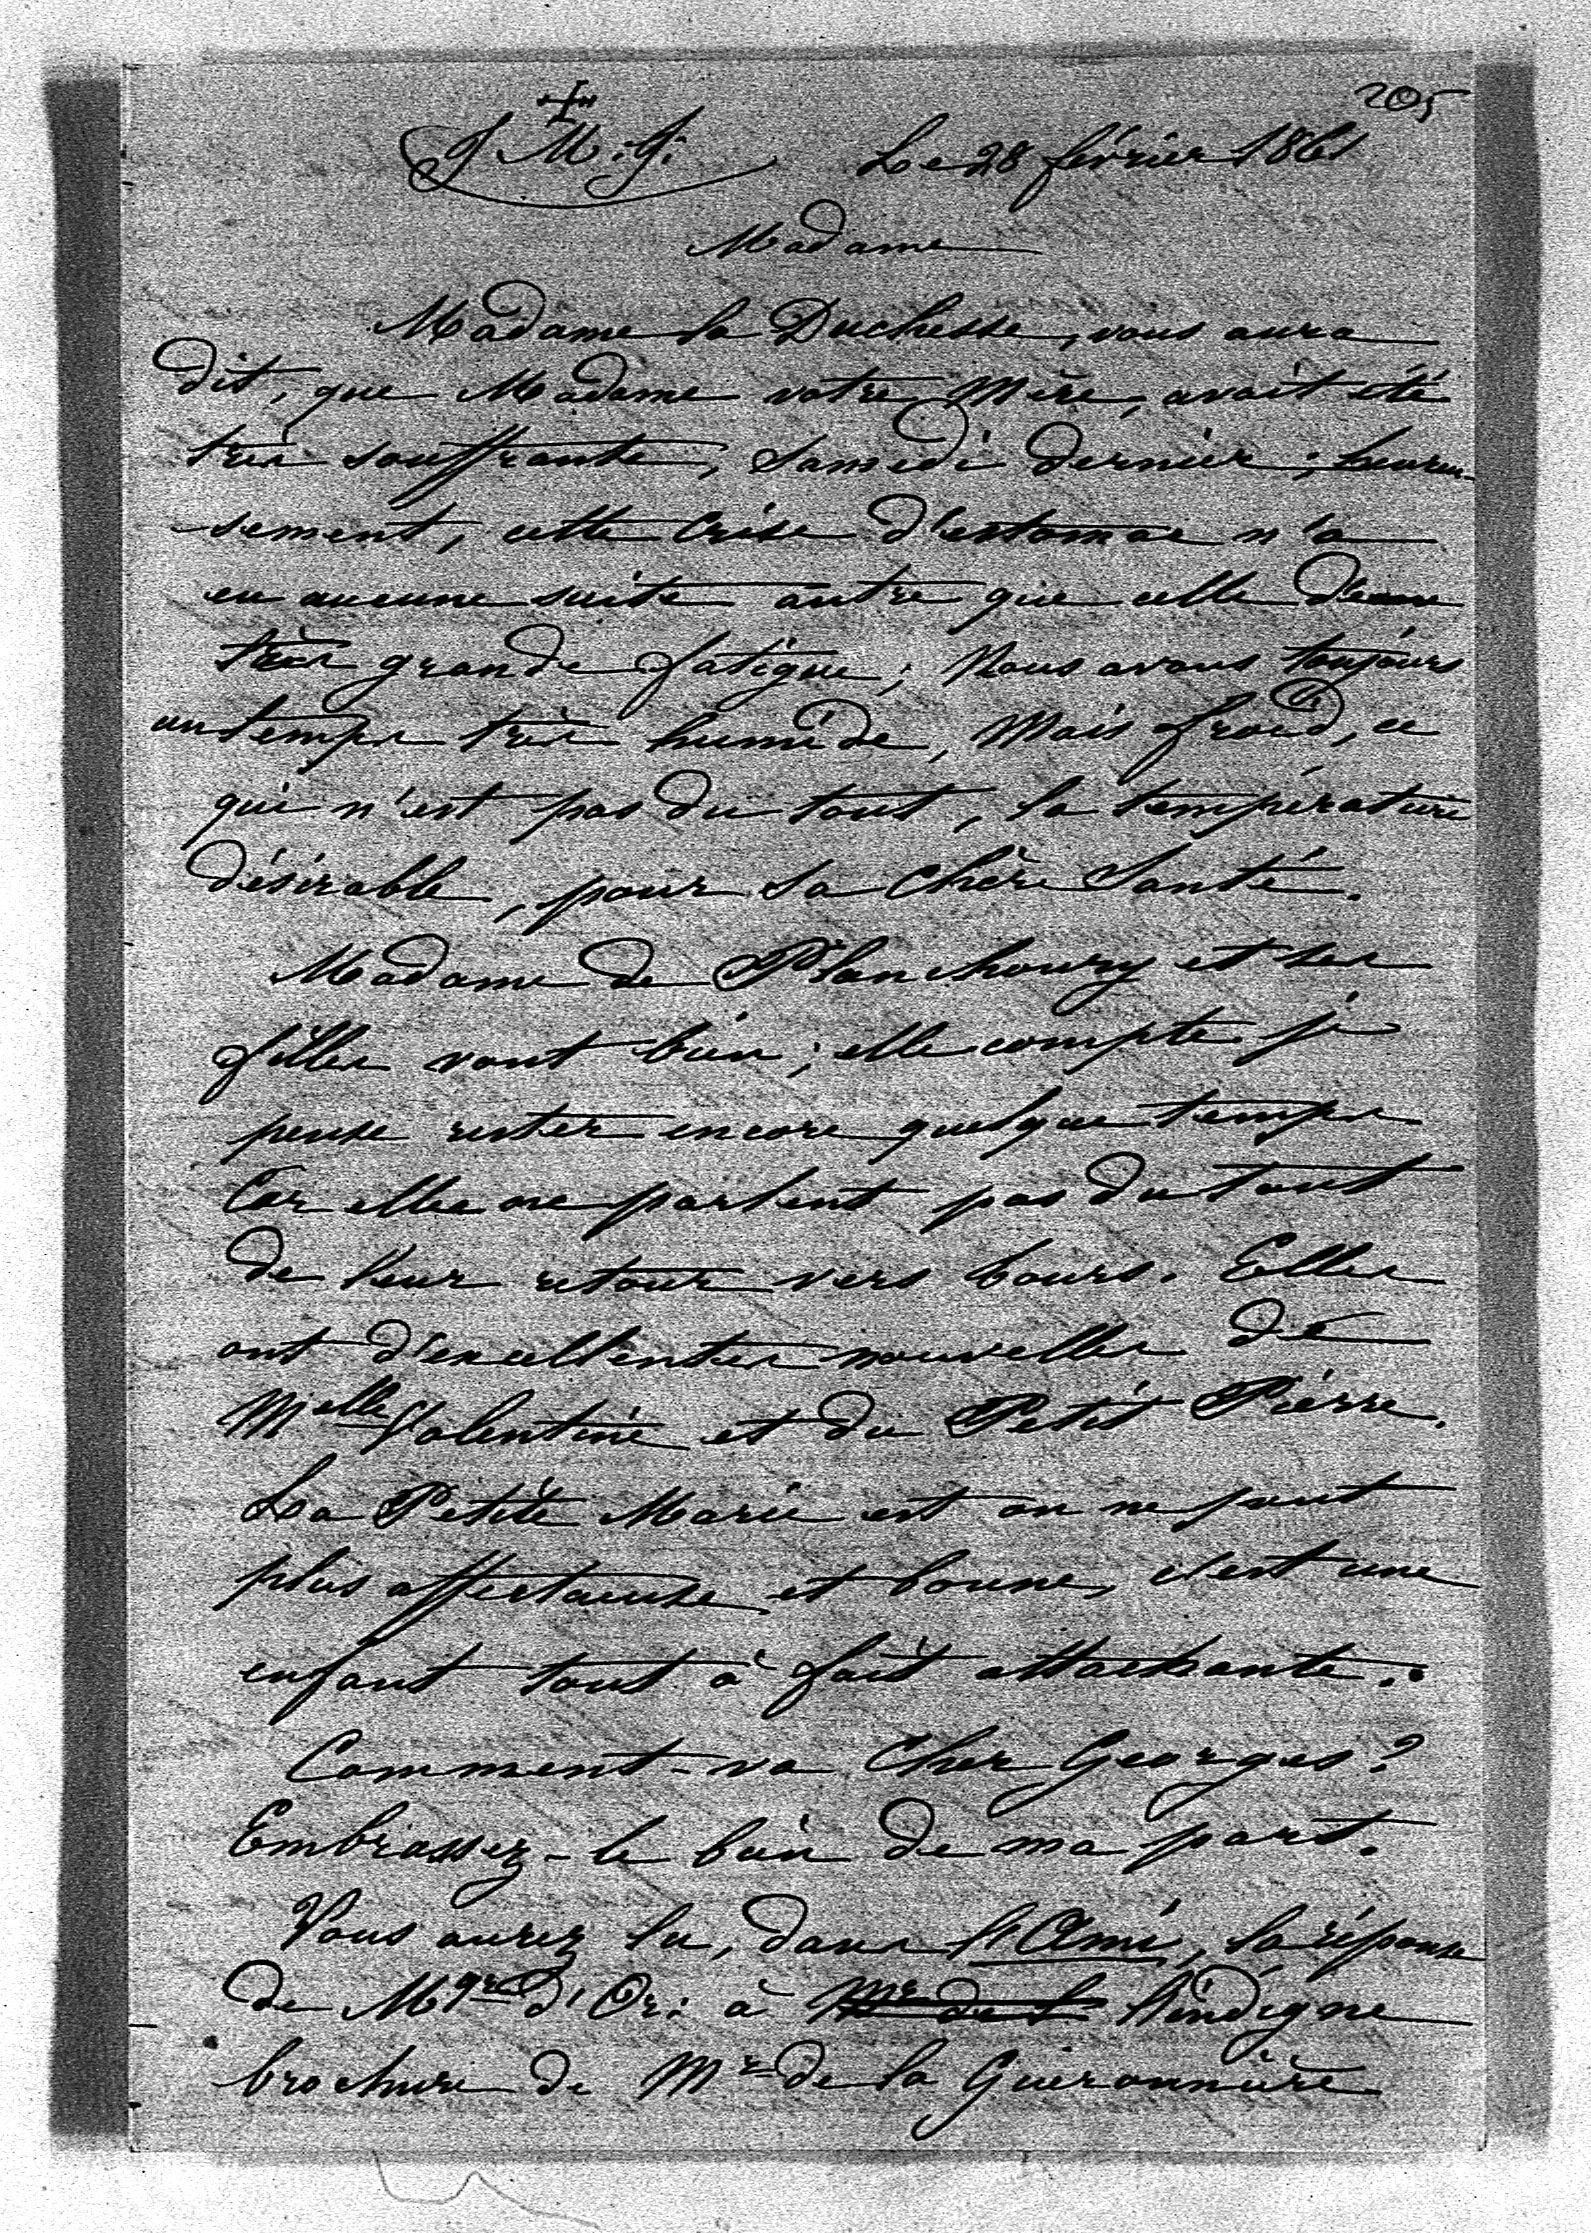 205
J. M. J. Le 28 février 1861
Madame
Madame la Duchesse, vous aura
dit, que Madame votre Mère, avait été
très souffrante, Samedi dernier ; heureu-
sement, cette Crise d'estomac n'a
eu aucune suite autre que celle d'une
très grande fatigue ; Nous avons toujours
un temps très humide, Mais froid, ce
qui n'est pas du tout, la température
désirable, pour sa Chère Santé.
Madame de Planchoury et ses
filles vont bien ; elle compte je
pense rester encore quelque temps
Car elles ne parlent pas du tout
de leur retour vers Tours. Elles
ont d'excellentes nouvelles de
Melle Valentine et du Petit Pierre.
La Petite Marie est on ne peut
plus affectueuse et bonne, c'est une
enfant tout à fait attachante..
Comment-va Cher Georges ?
Embrassez-le bien de ma part.
Vous aurez lu, dans l'Ami, la réponse
de Mgr d'Or: à Mr de l l'indigne
brochure de Mr de la Guéronnière